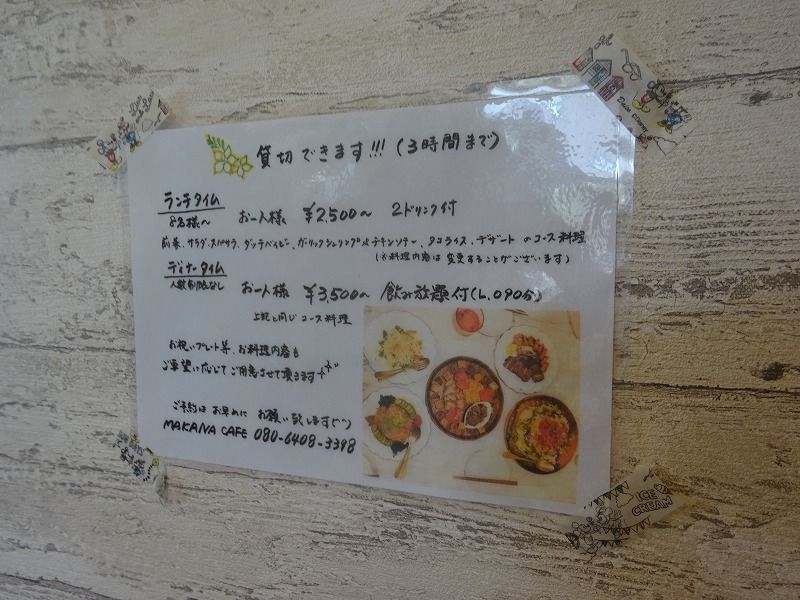 貸切できます!!! (3時間まで)
ランチタイム
8名様〜 お一人様 ¥2,500〜 2ドリンク付
前菜、サラダ、スパサラ、ダッチベイビー、ガーリックシュリンプorチキンソテー、タコライス、デザート のコース料理
(※料理内容は変更することがございます)
ディナータイム
人数制限なし お一人様 ¥3,500〜 飲み放題付(L.O90分)
上記と同じコース料理
お祝いプレート等、お料理内容も
ご要望に応じてご用意させて頂きます
ご予約はお早めに お願い致します(^^)
MAKANA CAFE 080-6408-3398
ICE CREAM